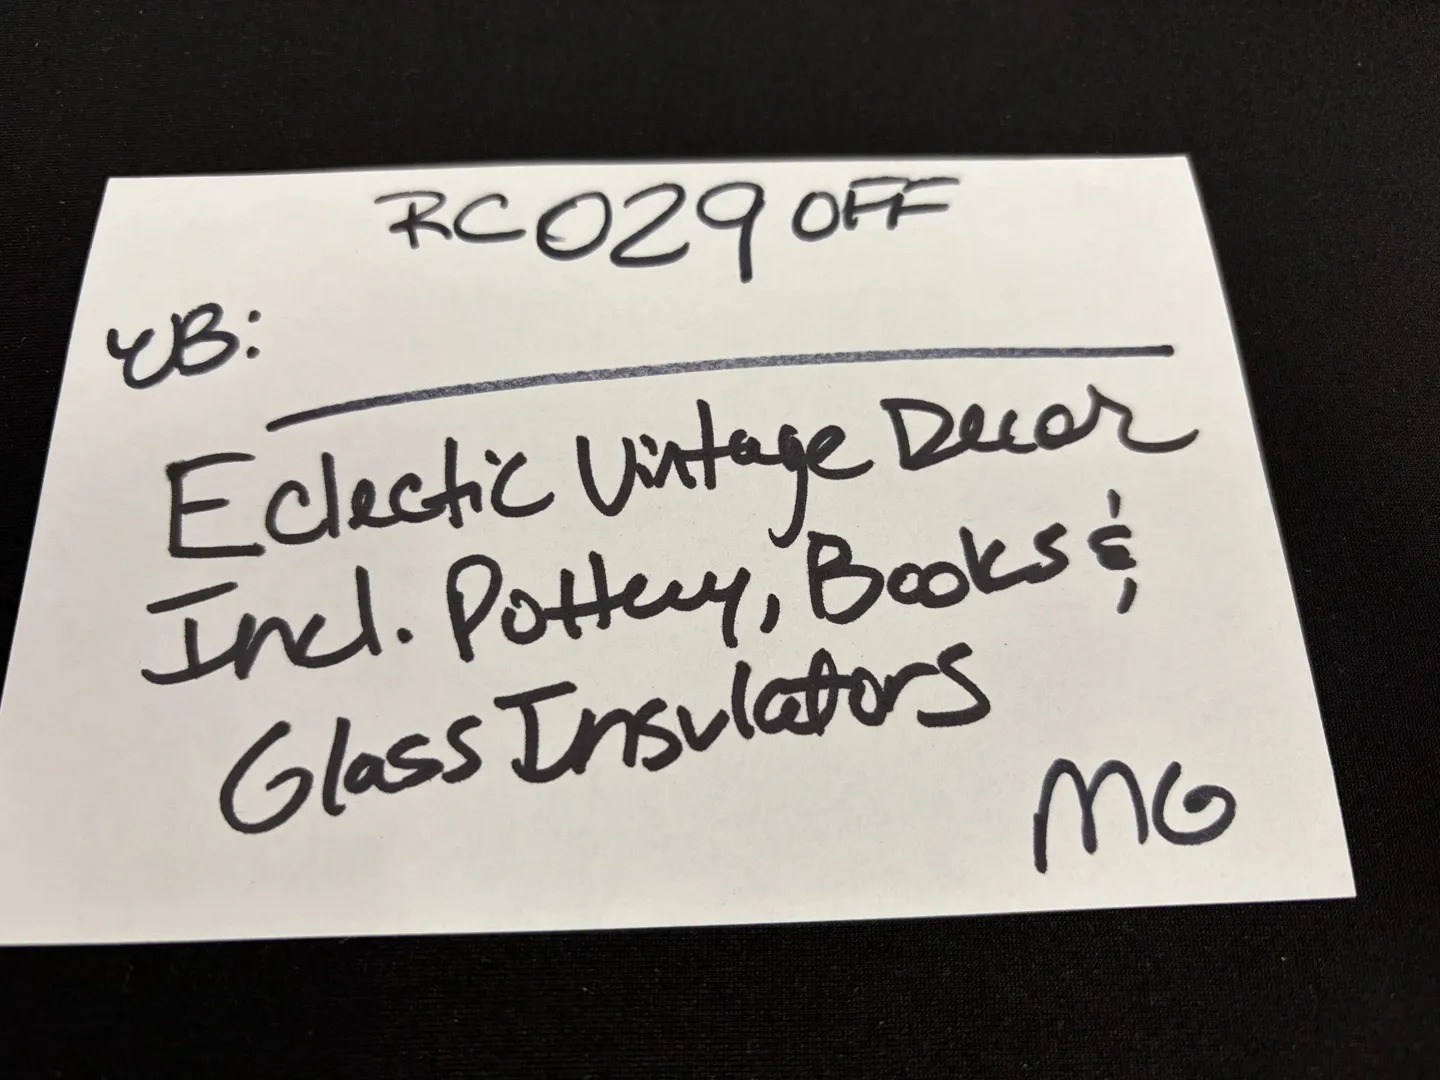 RC029 OFF
WB:
Eclectic Vintage Decor
Incl. Pottery, Books &
Glass Insulators
MG